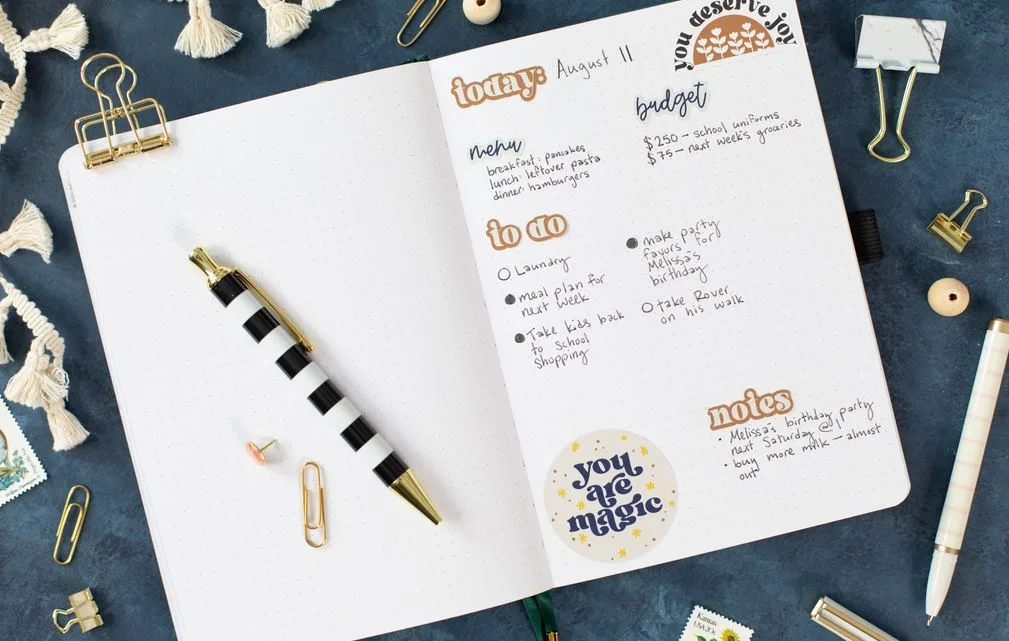 you deserve joy
today: August 11
budget
$250 – school uniforms
$75 – next week's groceries
menu
breakfast: pancakes
lunch: leftover pasta
dinner: hamburgers
to do
Laundry
meal plan for
next week
Take kids back
to school
shopping
make party
favors for
Melissa's
birthday
take Rover
on his walk
notes
• Melissa's birthday party
next Saturday @ 1
• buy more milk – almost
out
you
are
magic
Kansas
USA 20c